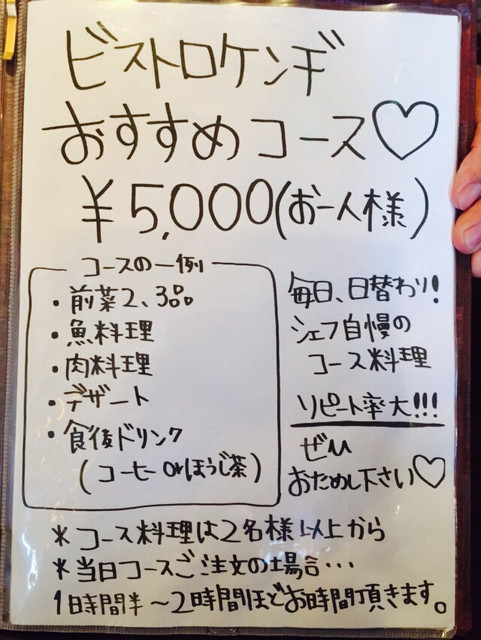 ビストロケンヂ
おすすめコース♡
¥5,000(お一人様)
コースの一例
・前菜2、3品
・魚料理
・肉料理
・デザート
・食後ドリンク
(コーヒーorほうじ茶)
毎日、日替わり!
シェフ自慢の
コース料理
リピート率大!!!
ぜひ
おためし下さい♡
*コース料理は2名様以上から
*当日コースご注文の場合・・・
1時間半〜2時間ほどお時間頂きます。